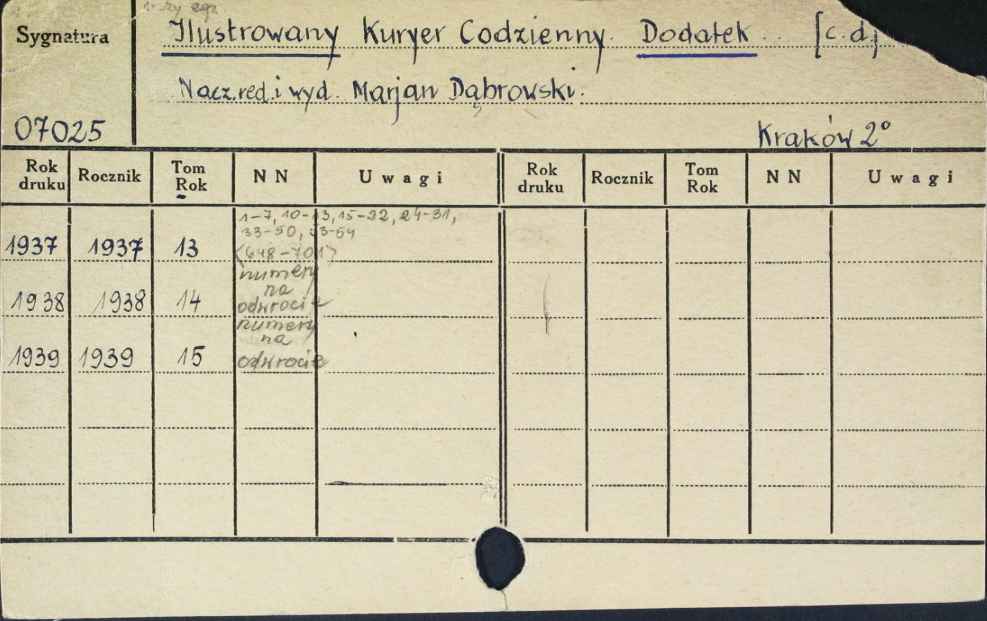 Sygnatura
Ilustrowany Kuryer Codzienny. Dodatek .. [c.d.
Nacz.red. i wyd. Marjan Dąbrowski.
07025
Kraków 2°
Rok druku Rocznik Tom Rok NN Uwagi Rok druku Rocznik Tom Rok NN Uwagi
1-7, 10-13, 15-22, 24-31,
33-50, 53-54
1937 1937 13 (648-701)
numery
na
1938 1938 14 odwrocie
numery
na
1939 1939 15 odwrocie